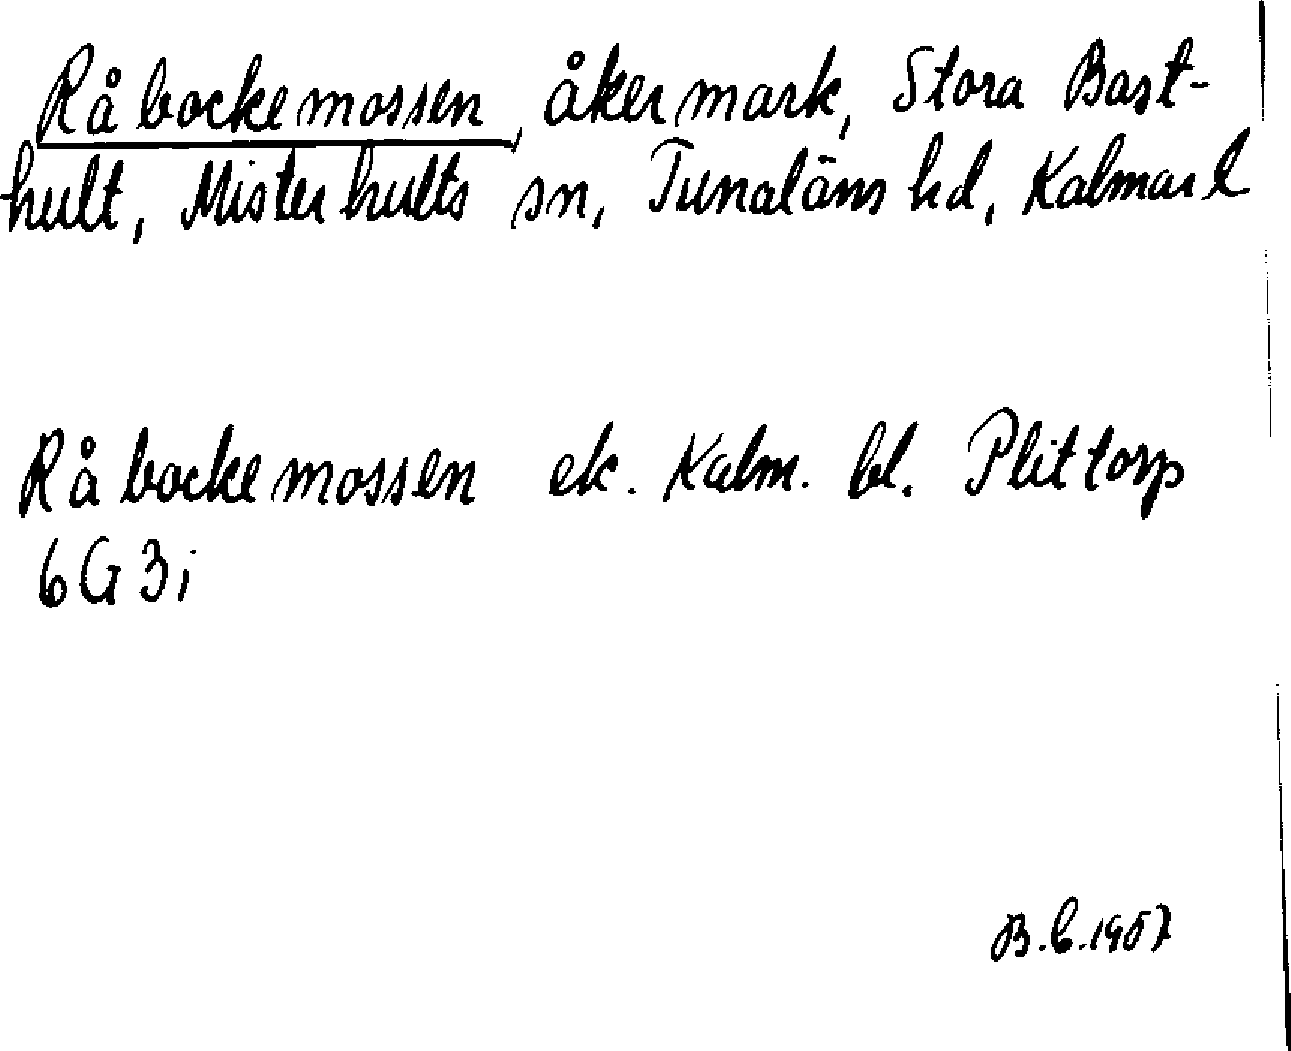 Råbockemossen, åkermark, Stora Bast-
hult, Misterhults sn, Tunaläns hd, Kalmar l
Råbockemossen ek. Kalm. bl. Plittorp
6G 3i
B.C. 1957